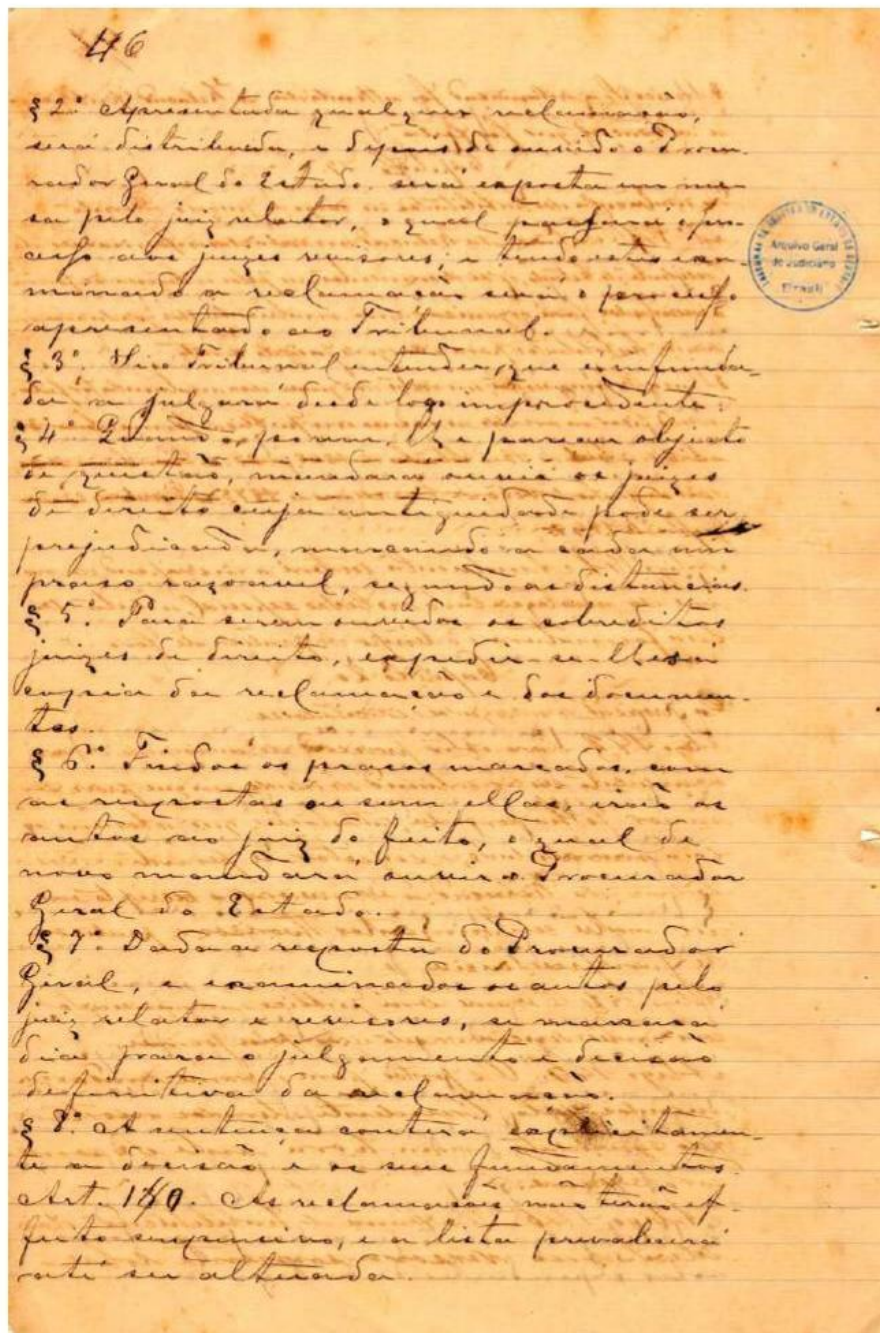 46
§ 2º Apresentada qualquer reclamação,
será distribuida, e depois de ouvido o Procu-
rador Geral do Estado será exposta em me-
sa pelo juiz relator, o qual passará o pro-
cesso aos juizes revisores, e tendo estes exa-
minado a reclamação será o processo
apresentado ao Tribunal.
§ 3º. Si o Tribunal entender, que é infunda-
da a julgará desde logo improcedente.
§ 4º Quando, porem, lhe pareça objecto
de questão, mandará ouvir os juizes
de direito cuja antiguidade pode ser
prejudicada, marcando a cada um
praso razoavel, segundo as distancias.
§ 5º. Para serem ouvidos os sobreditos
juizes de direito, expedir-se-lhes-á
copia da reclamação e dos documen-
tos.
§ 6º. Findos os prasos marcados, com
as respostas ou sem ellas, irão os
autos ao juiz do feito, o qual de
novo mandará ouvir o Procurador
Geral do Estado.
§ 7º Dada a resposta do Procurador
Geral, e examinados os autos pelo
juiz relator e revisores, se marcará
dia para o julgamento e decisão
definitiva da reclamação.
§ 8º. A sentença conterá explicitamen-
te a decisão e os seus fundamentos.
Art. 180. As reclamações não terão ef-
feito suspensivo, e a lista prevalecerá
até ser alterada.
Arquivo Geral
do Judiciário